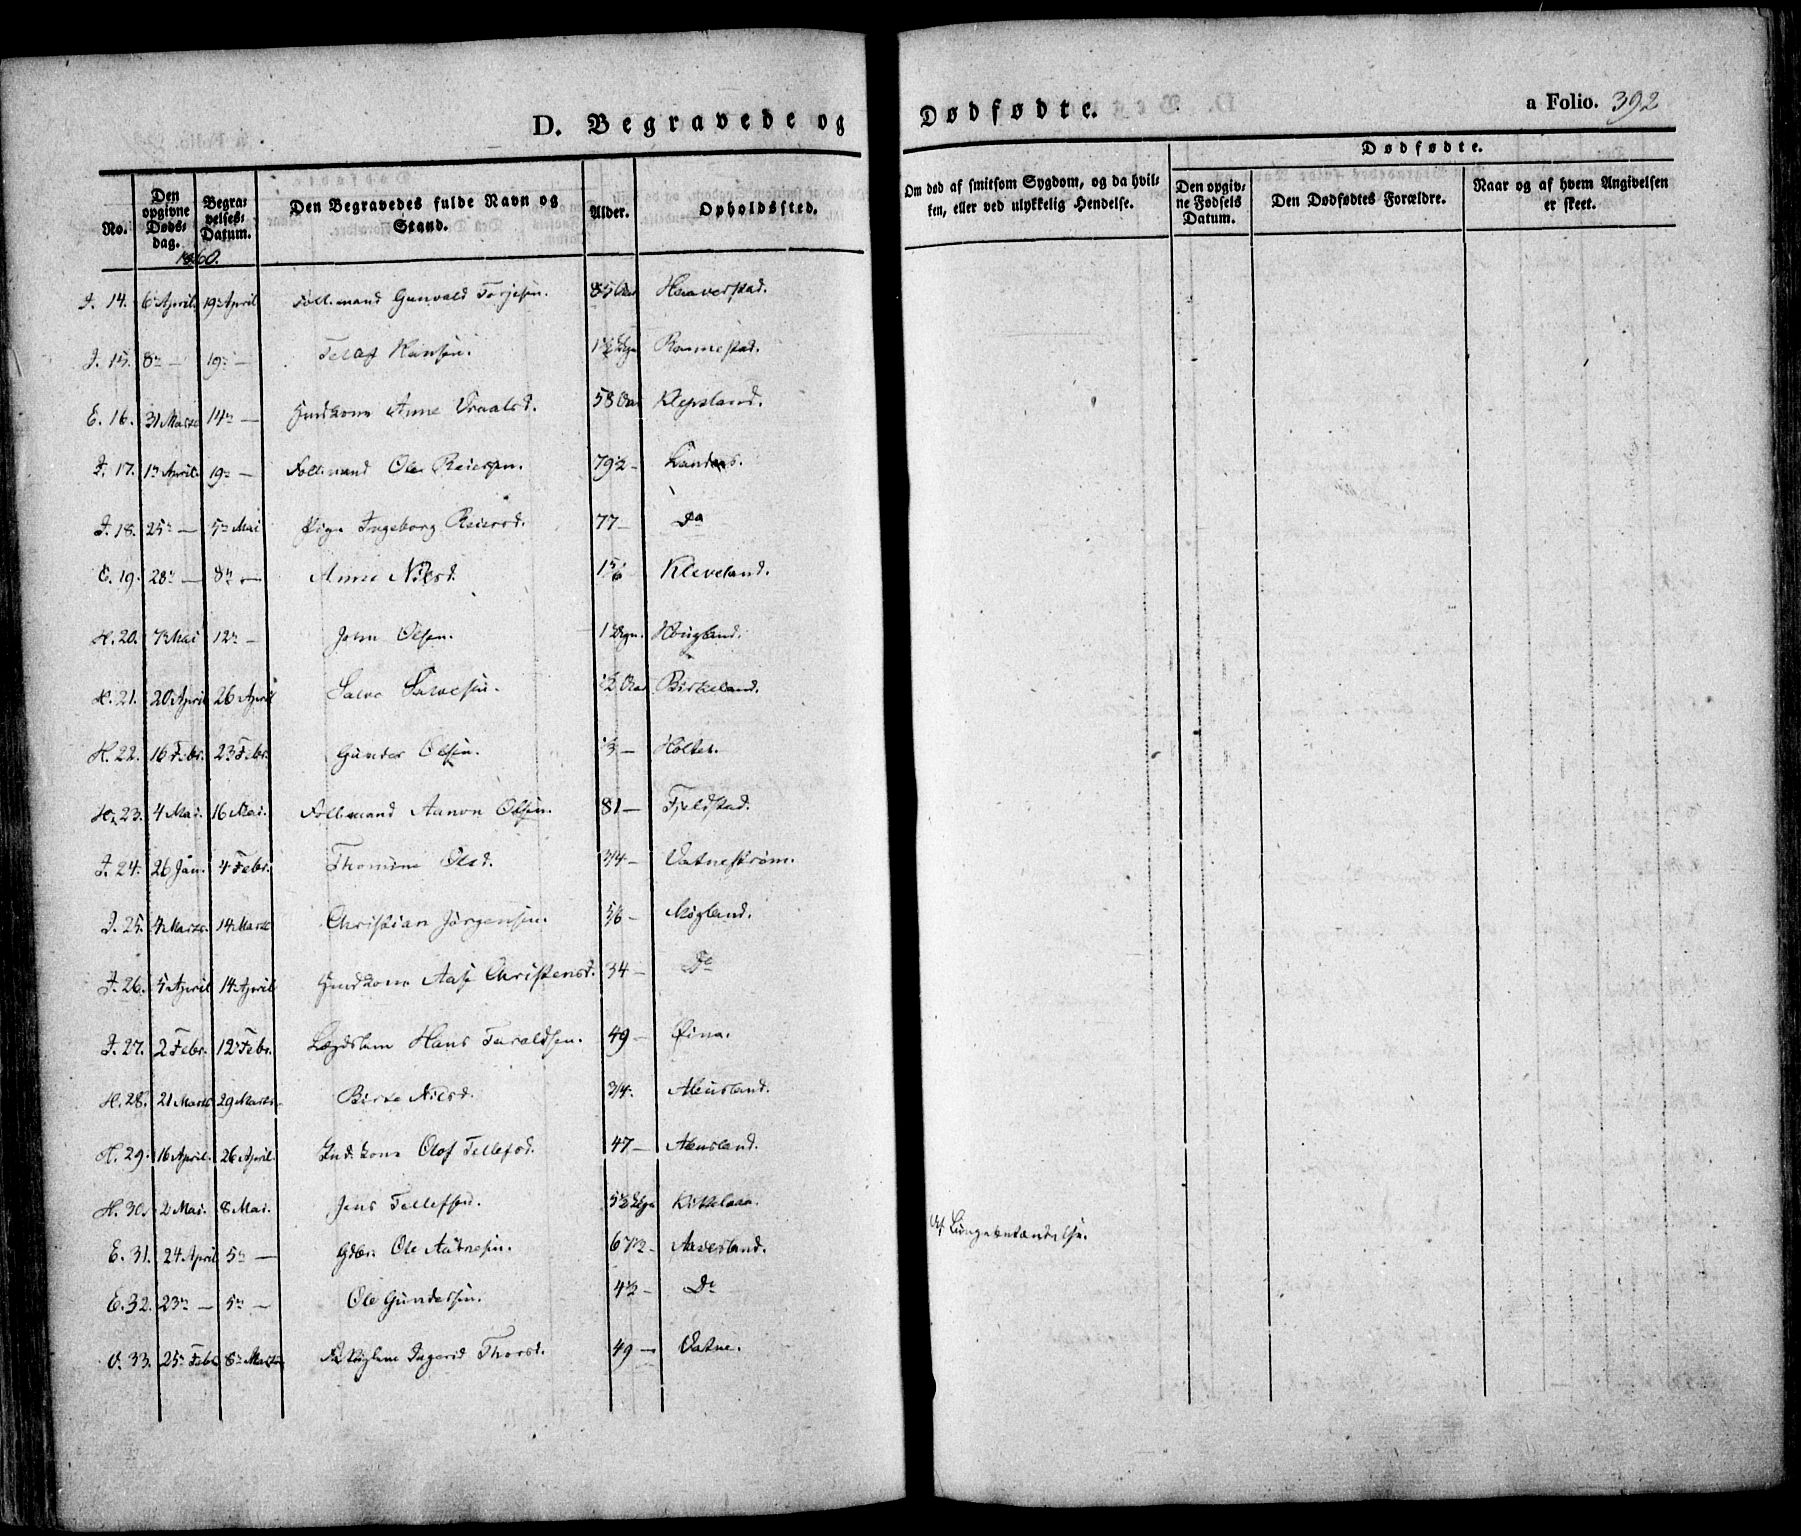 D. Begravede og Dødfødte.
a Folio. 392
No.
Den opgivne Døds-dag.
Begra-velses-Datum.
Den Begravedes fulde Navn og Stand.
Alder.
Opholdssted.
Om død af smitsom Sygdom, og da hvil-ken, eller ved ulykkelig Hendelse.
Dødfødte.
Den opgiv-ne Fødsels Datum.
Den Dødfødtes Forældre.
Naar og af hvem Angivelsen er skeet.
1860.
I. 14. 6te April. 19de April Follemand Gunvald Terjesen. 85 Aar Haaverstad.
I. 15. 8de — 19de — Tellef Hansen. Rannestad.
E. 16. 31 Marts 14de — Huuskone Anne 58 Aar Klepsland.
I. 17. 1ste April. 19de — Follemand Ole Reiersen. 79½ — Landaas.
I. 18. 25de — 5te Mai Pige Ingeborg Reiersd. 77 — Do
E. 19. 28de — 8de — Anne Nilsd. Kleveland.
H. 20. 7de Mai 12te — John Olsen. 1 Dgn. Hougland.
H. 21. 20 April 26 April Salve Salvesen. ½ Aar Birkeland.
H. 22. 16 Febr. 23 Febr. Gunder Olsen. ⅓ — Holter.
H. 23. 4 Mai. 16 Mai. Follemand Aanon Olsen. 81 — Fjeldstad.
I. 24. 26 Jan. 4 Febr. Thomine Olsd. 3/4 — Vatnestrøm.
I. 25. 4 Marts. 14 Marts Christian Jørgensen. 5/6 — Møgland.
I. 26. 5 April 14 April Huuskone Aase Christensd. 34 — Do
I. 27. 2 Febr. 12 Febr. Lægdslem Hans Taraldsen. 49 — Øina.
H. 28. 21 Marts 29 Marts Birte Nilsd. 3/4. Aleusland.
H. 29. 16 April. 26 April. Huuskone Olof Tellefsd. 47 — Aleusland.
H. 30. 2 Mai. 8 Mai. Jens Tellefsen. Kittelaaa.
E. 31. 24 April 5te — Gdbr. Ole Aadnesen. 67½ — Aaversland. Af Lungebetændelse.
E. 32. 23de — 5te — Ole Gundersen. 4½ — Do
V. 33. 25de Febr 8de Marts Fattiglem Ingerid Thorsd. 49 — Vatne.